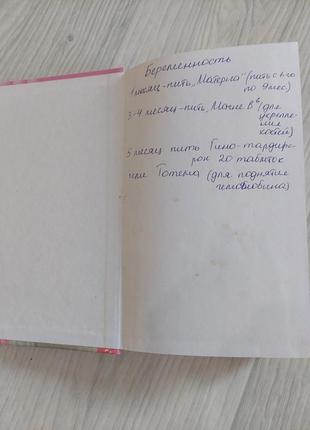 Беременность
1 месяц - пить „Матерна" (пить с 1 го
по 9 мес)
3-4 месяц - пить „Магне В6 (для
укрепле
ния
костей)
5 месяц пить Гино-тардифе
рон 20 таблеток
или Тотема (для поднятие
гемоглобина)